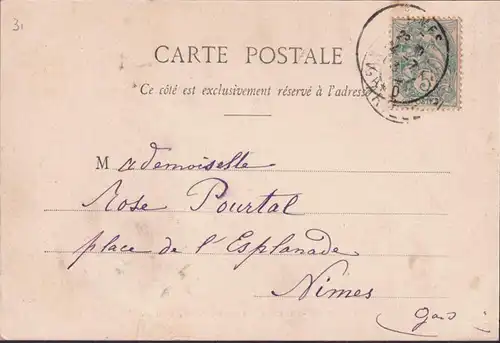 31
CARTE POSTALE
Ce côté est exclusivement réservé à l'adresse
Mademoiselle
Rose Pourtal
place de l'Esplanade
Nimes
Gard